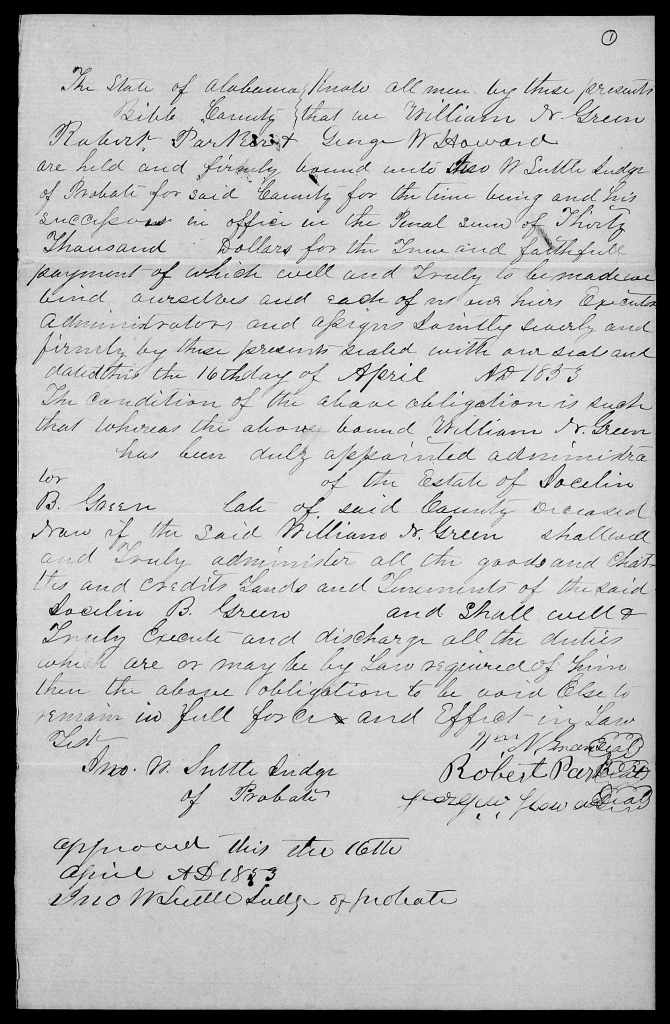 1
The State of Alabama } Know all men by these presents
Bibb County } that we William N. Green
Robert Parker & George W Howard
are held and firmly bound unto Jno W Suttle Judge
of Probate for said County for the time being and his
successors in office in the Penal sum of Thirty
Thousand Dollars for the True and faithfull
payment of which well and Truly to be made we
bind ourselves and each of us our heirs Executors
Administrators and assigns Jointly severly and
firmly by these presents sealed with our seal and
dated this the 16th day of April AD 1853
The condition of the above obligation is such
that whereas the above bound William N. Green
has been duly appointed administra
tor of the Estate of Jocelin
B. Green late of said County deceased
Now if the said William N. Green shall well
and Truly administer all the goods and Chat-
tles and credits Lands and Tenements of the said
Jocelin B. Green and shall well &
Truly Execute and discharge all the duties
which are or may be by Law required of him
then the above obligation to be void Else to
remain in full force and Effect in Law
Test Wm N Green Seal
Jno. W. Suttle Judge Robert Parker Seal
of Probate George W Howard Seal
approved this the 16th
April AD 1853
Jno W Suttle Judge of probate